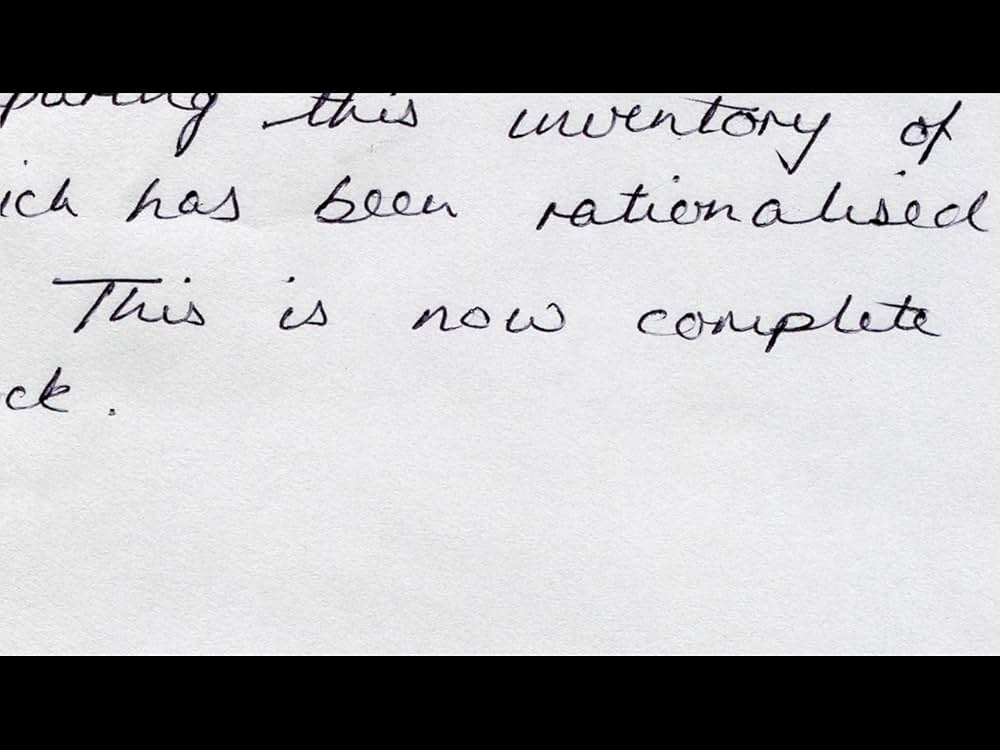 this inventory of
has been rationalised
This is now complete